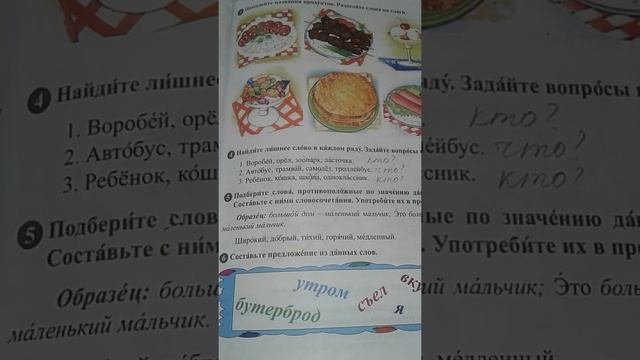 названия продуктов. Разделите слова на слоги.
4 Найди́те ли́шнее сло́во в ка́ждом ряду́. Зада́йте вопро́сы
1. Воробе́й, орёл, зоопа́рк, ла́сточка. кто?
2. Авто́бус, трамва́й, самолёт, тролле́йбус. что?
3. Ребёнок, ко́шка, шко́ла, однокла́ссник. кто?
5 Подбери́те слова́, противополо́жные по значе́нию да́
Соста́вьте с ни́ми словосочета́ния. Употреби́те их в пр
Образе́ц: большо́й дом – ма́ленький ма́льчик; Э́то бо
ма́ленький ма́льчик.
Широ́кий, до́брый, ти́хий, горя́чий, ме́дленный.
6 Соста́вьте предложе́ние из да́нных слов.
утром съел вку
бутерброд я